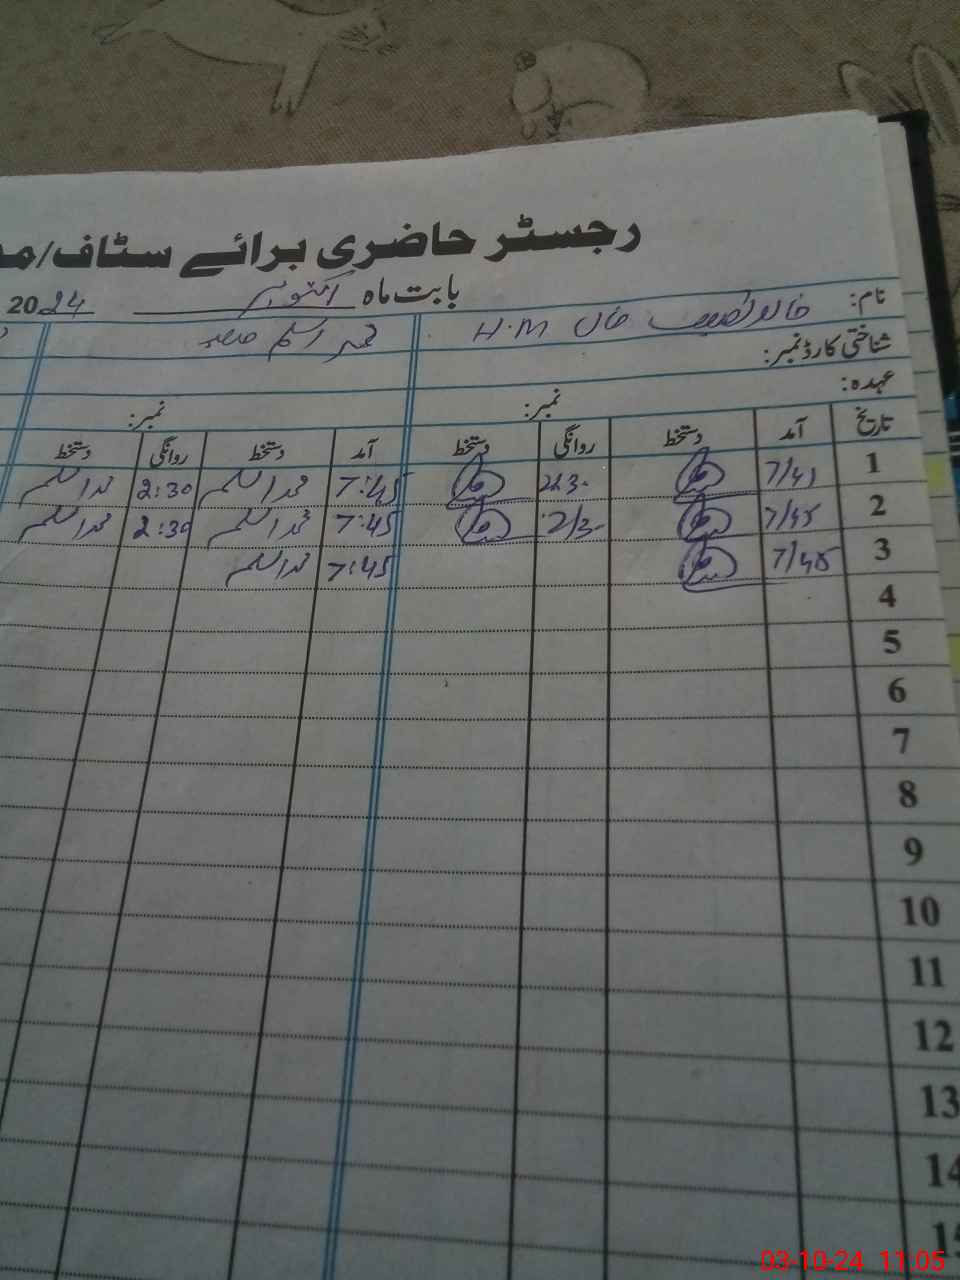 رجسٹر حاضری برائے سٹاف/
بابت ماہ اکتوبر 2024
نام: خان H.M محمد اسلم
شناختی کارڈ نمبر:
عہدہ: نمبر: نمبر:
تاریخ آمد دستخط روانگی دستخط آمد دستخط روانگی دستخط
1 7/41 7:45 محمد اسلم 2:30 محمد اسلم
2 7/45 2/30 7:45 محمد اسلم 2:30 محمد اسلم
3 7/45 7:45 محمد اسلم
4
5
6
7
8
9
10
11
12
13
14
15
03-10-24 11:05